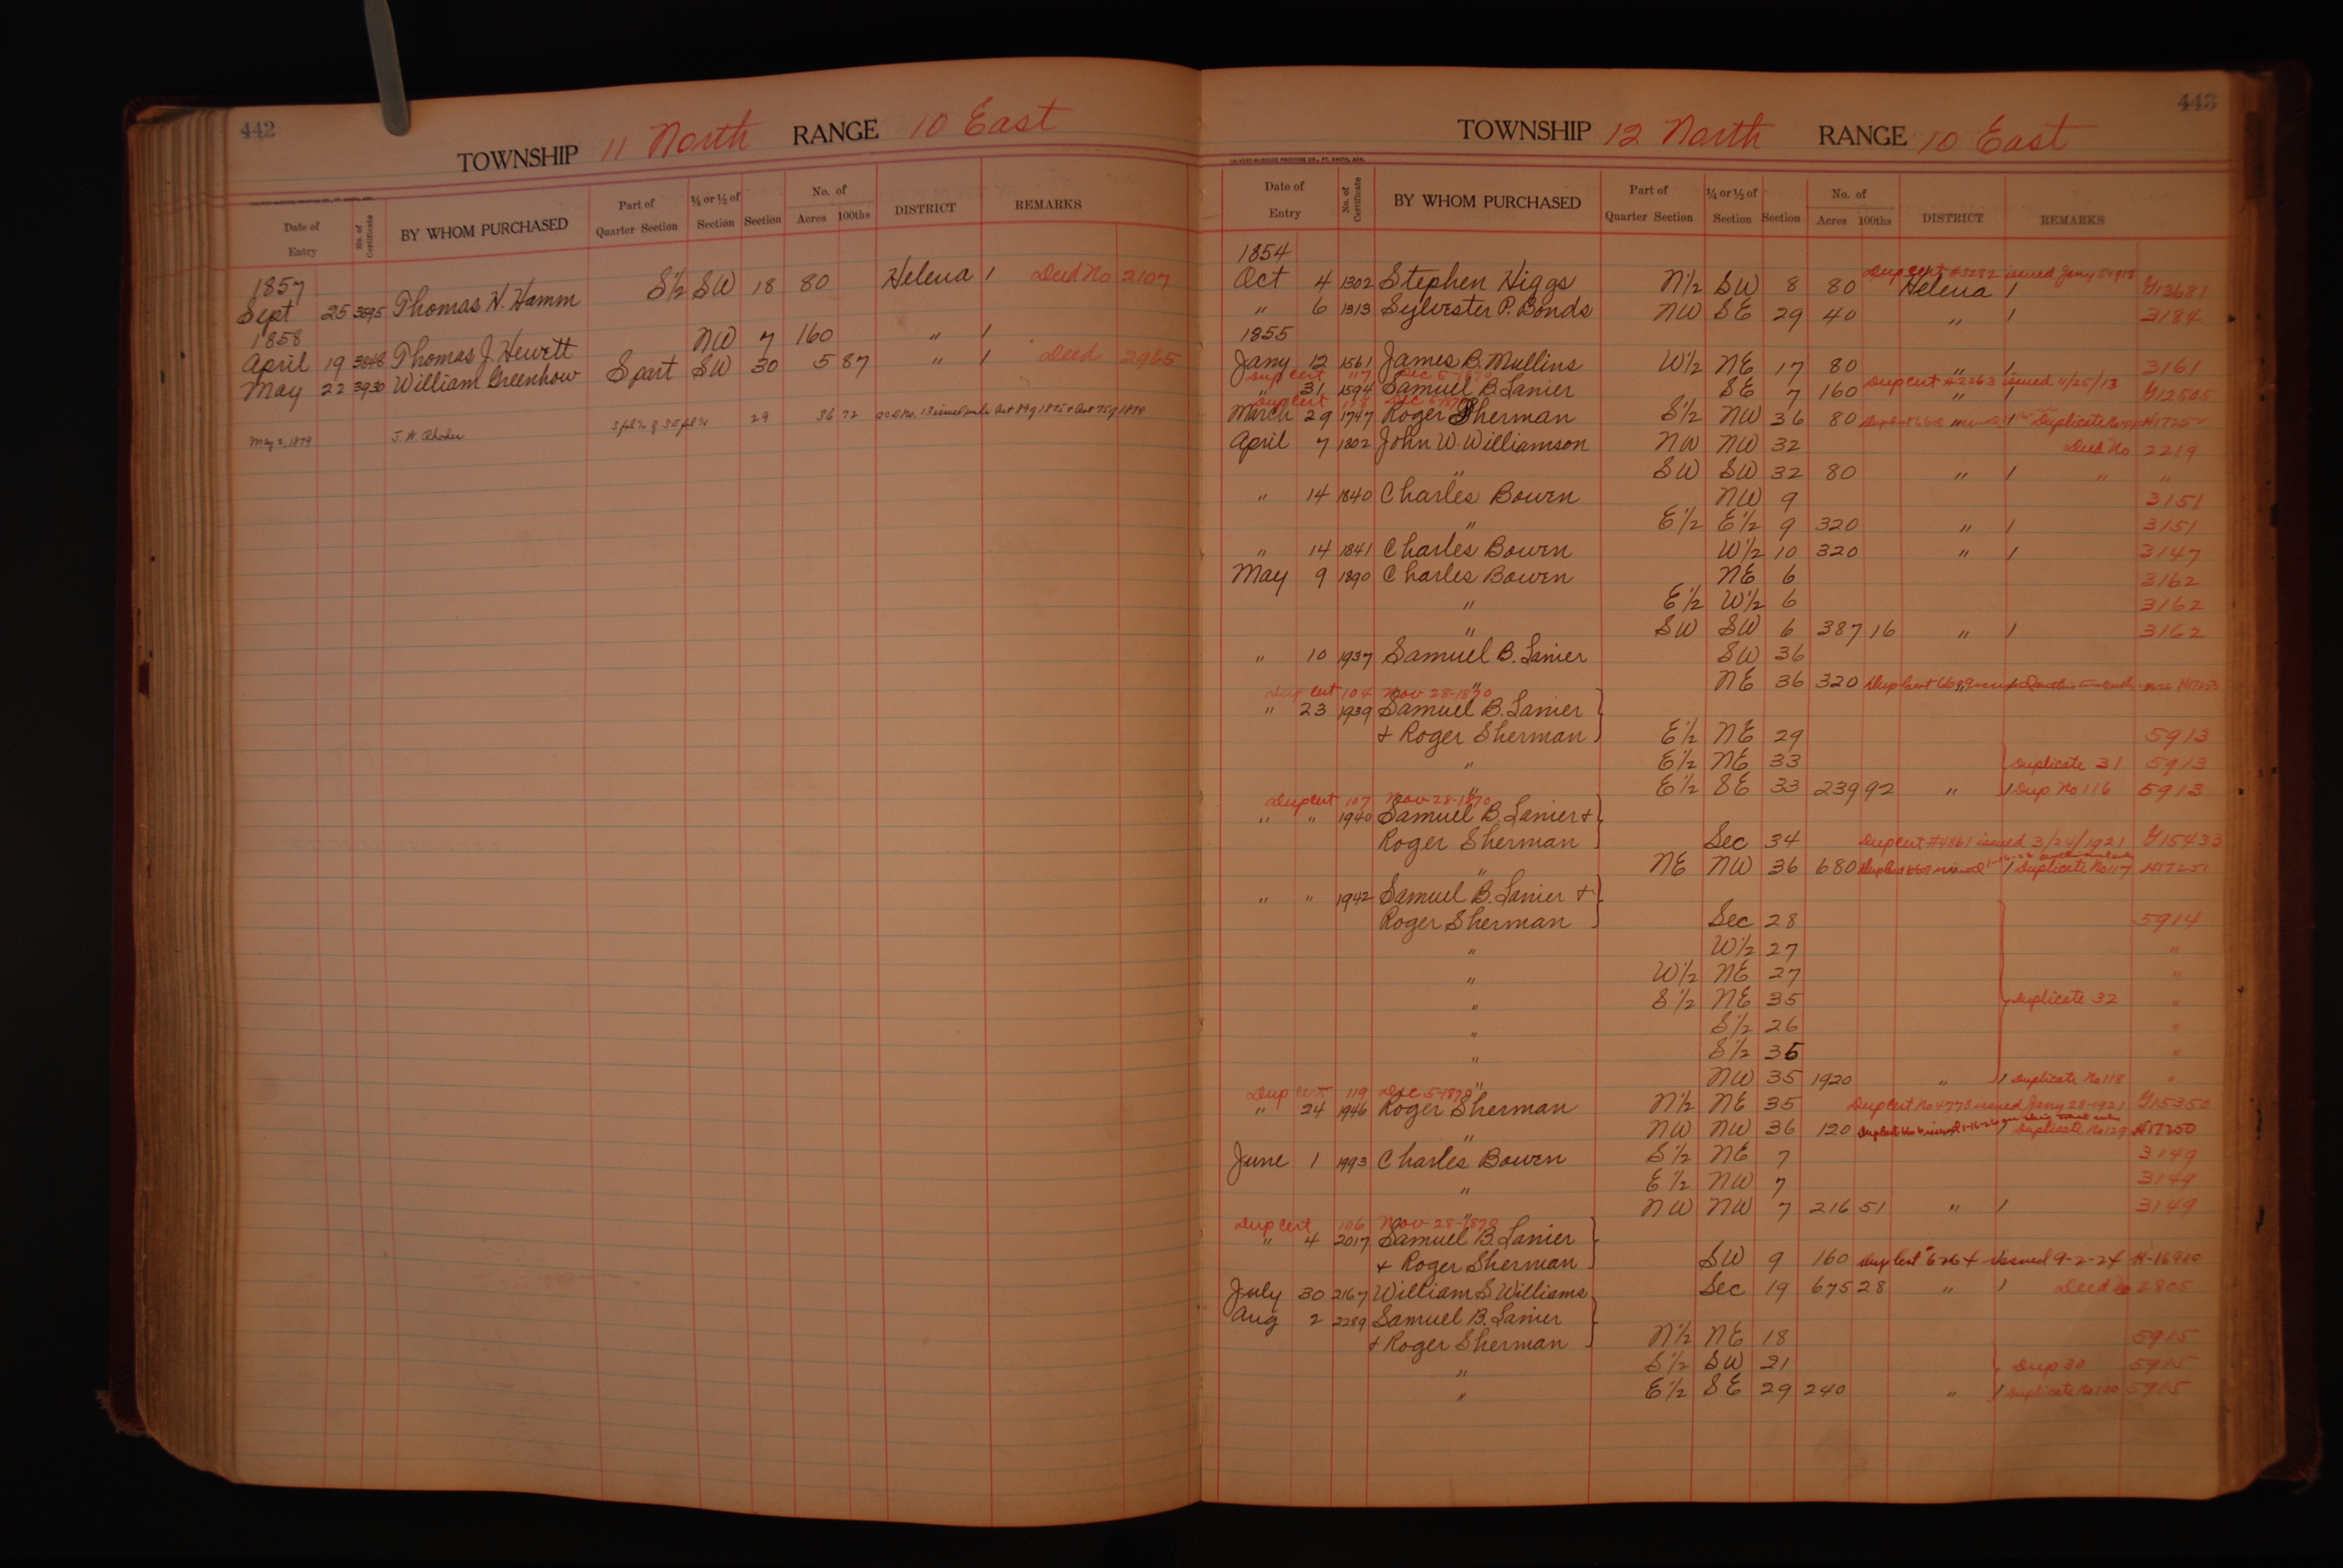 442
TOWNSHIP 11 North RANGE 10 East
Date of Entry No. of Certificate BY WHOM PURCHASED Part of Quarter Section ¼ or ½ of Section Section No. of Acres 100ths DISTRICT REMARKS
1857
Sept 25 3695 Thomas N. Hamm S½ SW 18 80 Helena 1 Deed No 2107
1858
April 19 3848 Thomas J. Hewett NW 7 160 " 1
May 22 3930 William Greenhow S part SW 30 5 87 " 1 Deed 2965
May 2, 1879 J. H. Rhodes 29 36 72
443
TOWNSHIP 12 North RANGE 10 East
CALVERT-McBRIDE PRINTING CO., FT. SMITH, ARK.
Date of Entry No. of Certificate BY WHOM PURCHASED Part of Quarter Section ¼ or ½ of Section Section No. of Acres 100ths DISTRICT REMARKS
1854
Dup cert #3282 issued Jany 5-1918
Oct 4 1302 Stephen Higgs N½ SW 8 80 Helena 1 G13681
" 6 1313 Sylvester P. Bonds NW SE 29 40 " 1 3184
1855
Jany 12 1561 James B. Mullins W½ NE 17 80 " 1 3161
Dup cert 117 Dec 5-1870
" 31 1594 Samuel B. Lanier SE 7 160 Dup cert #2263 issued 11/25/13 " 1 G12505
Dup cert 118 Dec 5-1870
March 29 1747 Roger Sherman S½ NW 36 80 1 Duplicate H17252
April 7 1802 John W. Williamson NW NW 32 Deed No 2219
" SW SW 32 80 " 1 " "
" 14 1840 Charles Bowen NW 9 3151
" E½ E½ 9 320 " 1 3151
" 14 1841 Charles Bowen W½ 10 320 " 1 3147
May 9 1890 Charles Bowen NE 6 3162
" E½ W½ 6 3162
" SW SW 6 387 16 " 1 3162
" 10 1937 Samuel B. Lanier SW 36
" NE 36 320 Dup Cert H17253
Dup cert 104 Nov 28-1870
" 23 1939 Samuel B. Lanier
& Roger Sherman E½ NE 29 5913
" E½ NE 33 Duplicate 31 5913
" E½ SE 33 239 92 " 1 Dup No 116 5913
Dup cert 107 Nov-28-1870
" " 1940 Samuel B. Lanier &
Roger Sherman Sec 34 Dup cert #4861 issued 3/24/1921 G15433
" NE NW 36 680 1 Duplicate No 117 H17251
" " 1942 Samuel B. Lanier &
Roger Sherman Sec 28 5914
" W½ 27 "
" W½ NE 27 "
" S½ NE 35 Duplicate 32 "
" S½ 26 "
" S½ 35 "
" NW 35 1920 " 1 Duplicate No 118 "
Dup cert 119 Dec 5-1870
" 24 1946 Roger Sherman N½ NE 35 Dup Cert No 4778 issued Jany 28-1921 G15350
" NW NW 36 120 1 Duplicate No 129 H17250
June 1 1993 Charles Bowen S½ NE 7 3149
" E½ NW 7 3149
" NW NW 7 216 51 " 1 3149
Dup cert 106 Nov-28-1870
" 4 2017 Samuel B. Lanier
& Roger Sherman SW 9 160 Dup Cert #6264 issued 9-2-24 H-16910
July 30 2167 William S Williams Sec 19 675 28 " 1 Deed No 2805
Aug 2 2289 Samuel B. Lanier
& Roger Sherman N½ NE 18 5915
" S½ SW 21 Dup 30 5915
" E½ SE 29 240 " 1 Duplicate No 120 5915